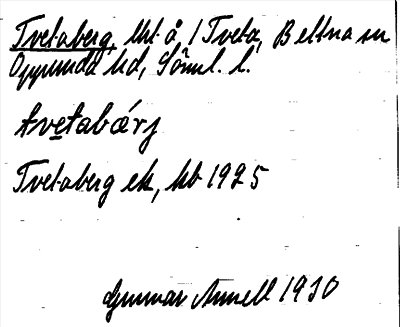 Tvetaberg, lht å 1 Tveta, Bettna sn
Oppunda hd, Söml. l.
tvetabärj
Tvetaberg ek, kb 1925
Gunnar Annell 1930